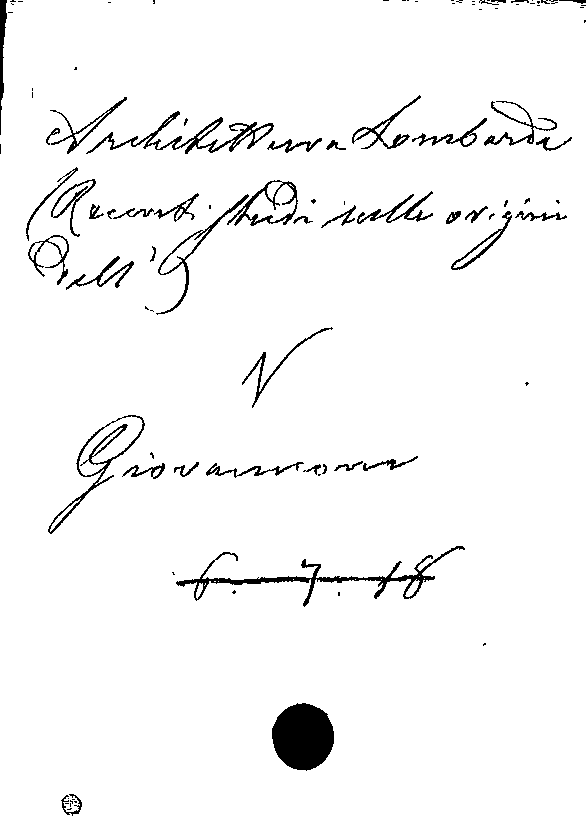 Architettura Lombarda
(Recenti studi sulle origini
dell')
V
Giovannoni
6. 7. 18